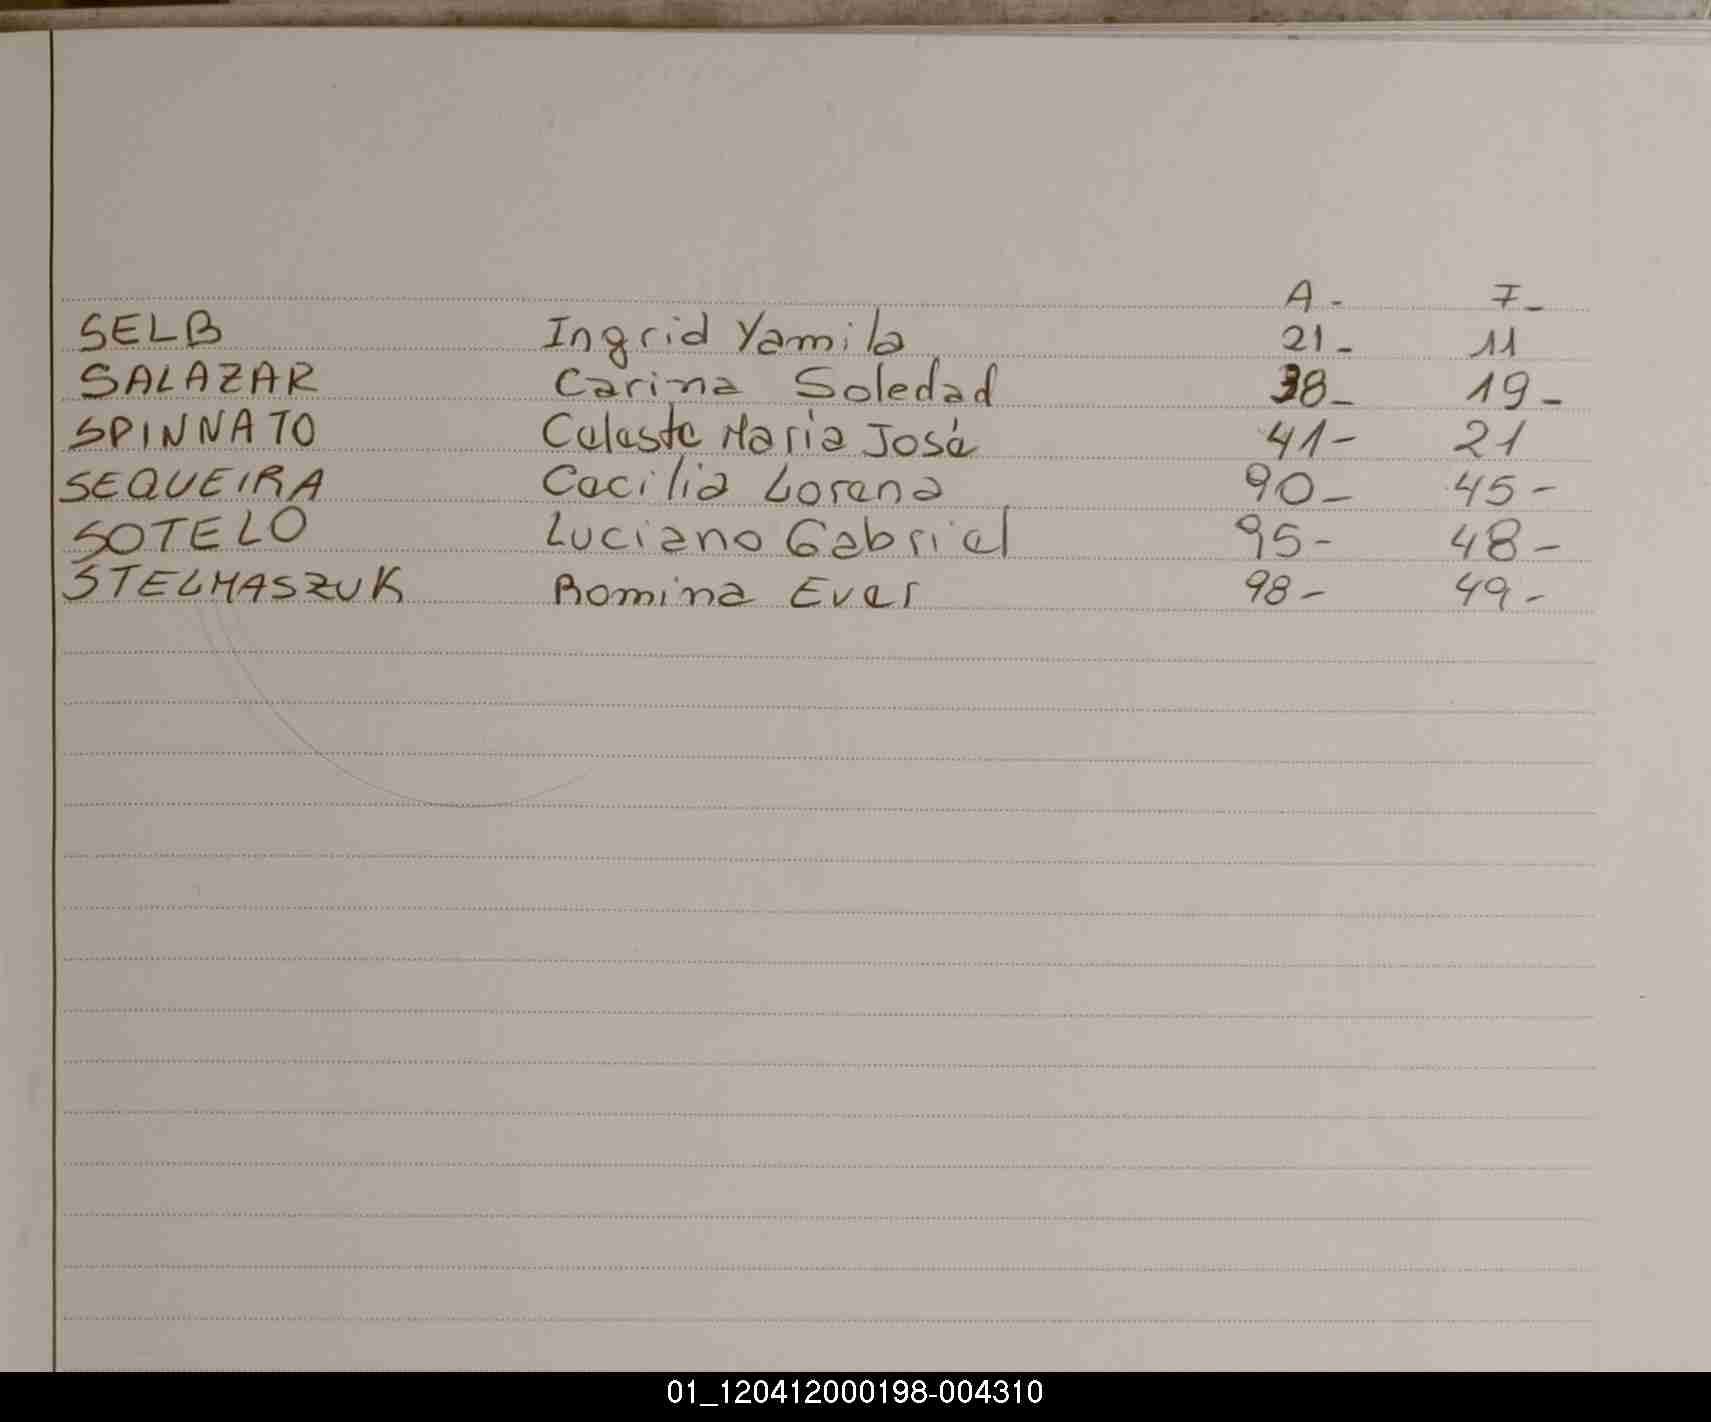 A - F -
SELB Ingrid Yamila 21 - 11
SALAZAR Carina Soledad 38 - 19 -
SPINNATO Celeste Maria José 41 - 21
SEQUEIRA Cecilia Lorena 90 - 45 -
SOTELO Luciano Gabriel 95 - 48 -
STELMASZUK Romina Ever 98 - 49 -
01_120412000198-004310